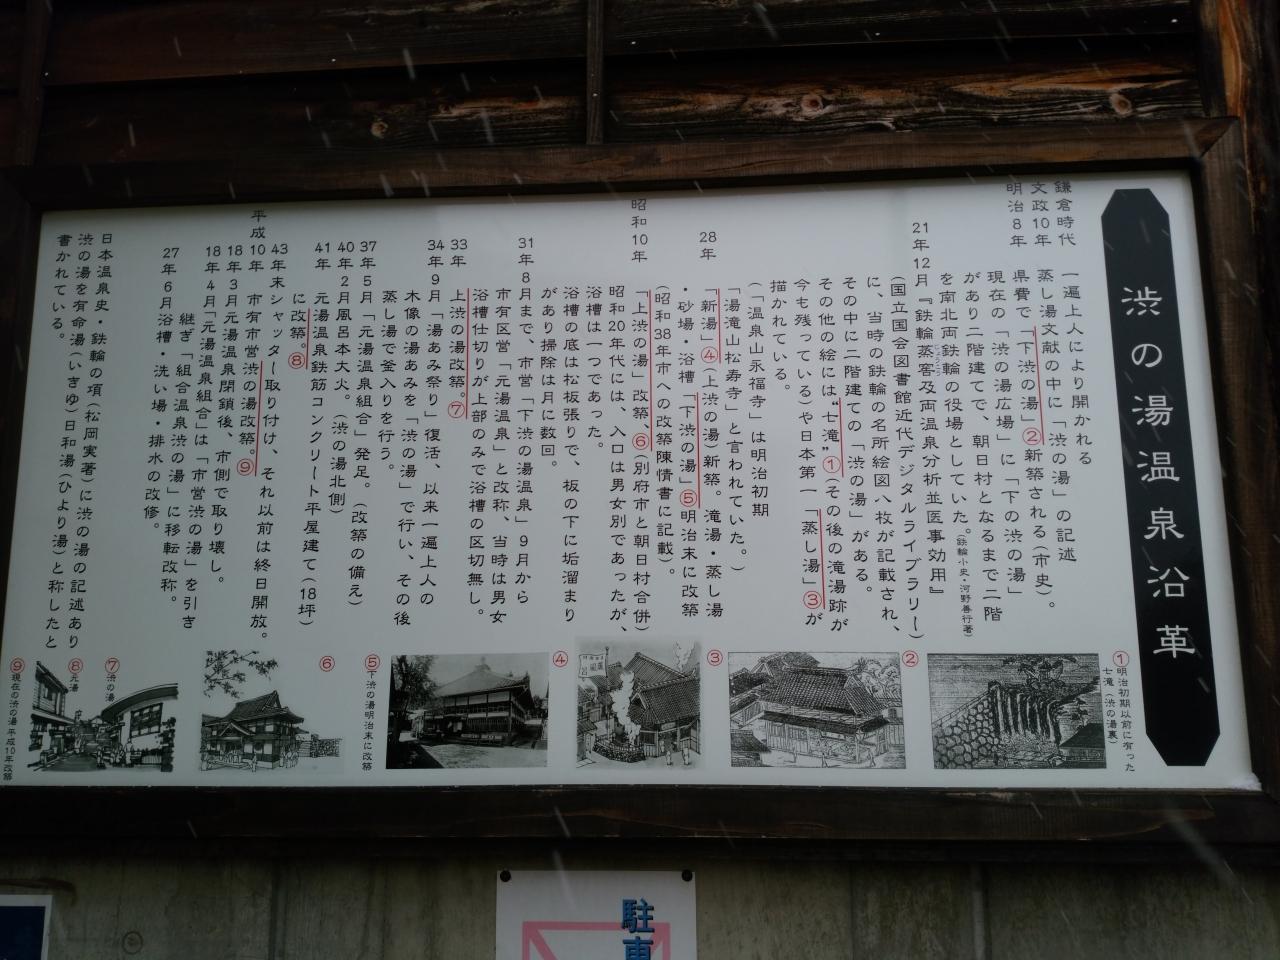 渋の湯温泉沿革
鎌倉時代 一遍上人により開かれる
文政10年 蒸し湯文献の中に「渋の湯」の記述
明治8年 県費で「下渋の湯」②新築される(市史)。
現在の「渋の湯広場」に「下の渋の湯」
があり二階建てで、朝日村となるまで二階
を南北両鉄輪の役場としていた。(鉄輪小史・河野善行著)
21年12月『鉄輪蒸客及両温泉分析並医事効用』
(国立国会図書館近代デジタルライブラリー)
に、当時の鉄輪の名所絵図八枚が記載され、
その中に二階建ての「渋の湯」がある。
その他の絵には“七滝”①(その後の滝湯跡が
今も残っている)や日本第一「蒸し湯」③が
描かれている。
(「温泉山永福寺」は明治初期
「湯滝山松寿寺」と言われていた。)
28年 「新湯」④(上渋の湯)新築。滝湯・蒸し湯
・砂場・浴槽「下渋の湯」⑤明治末に改築
(昭和38年市への改築陳情書に記載)。
昭和10年 「上渋の湯」改築、⑥(別府市と朝日村合併)
昭和20年代には、入口は男女別であったが、
浴槽は一つであった。
浴槽の底は松板張りで、板の下に垢溜まり
があり掃除は月に数回。
31年8月まで、市営「下渋の湯温泉」9月から
市有区営「元湯温泉」と改称、当時は男女
浴槽仕切りが上部のみで浴槽の区切無し。
33年 上渋の湯改築。⑦
34年9月「湯あみ祭り」復活、以来一遍上人の
木像の湯あみを「渋の湯」で行い、その後
蒸し湯で釜入りを行う。
37年5月「元湯温泉組合」発足。(改築の備え)
40年2月風呂本大火。(渋の湯北側)
41年 元湯温泉鉄筋コンクリート平屋建て(18坪)
に改築。⑧
43年末シャッター取り付け、それ以前は終日開放。
平成10年 市有市営渋の湯改築。⑨
18年3月元湯温泉閉鎖後、市側で取り壊し。
18年4月「元湯温泉組合」は「市営渋の湯」を引き
継ぎ「組合温泉渋の湯」に移転改称。
27年6月浴槽・洗い場・排水の改修。
日本温泉史・鉄輪の項(松岡実著)に渋の湯の記述あり
渋の湯を有命湯(いきゆ)日和湯(ひより湯)と称したと
書かれている。
①明治初期以前に有った
七滝(渋の湯裏)
②
③
④
⑤下渋の湯明治末に改築
⑥
⑦渋の湯
⑧元湯
⑨現在の渋の湯平成10年改築
駐車